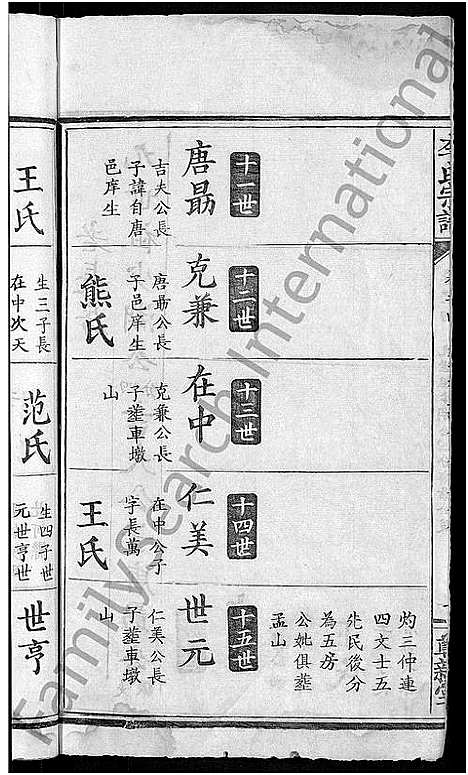 李氏宗譜
灼三仲連
四文士五
先民後分
為五房
公妣俱塟
孟山
十一世
唐勗
吉夫公長
子諱自唐
邑庠生
十二世
克兼
唐勗公長
子邑庠生
熊氏
十三世
在中
克兼公長
子塟車墩
山
十四世
仁美
在中公子
字長萬
王氏
十五世
世元
仁美公長
子塟車墩
山
王氏
生三子長
在中次天
范氏
生四子世
元世亨世
世亨
FamilySearch International